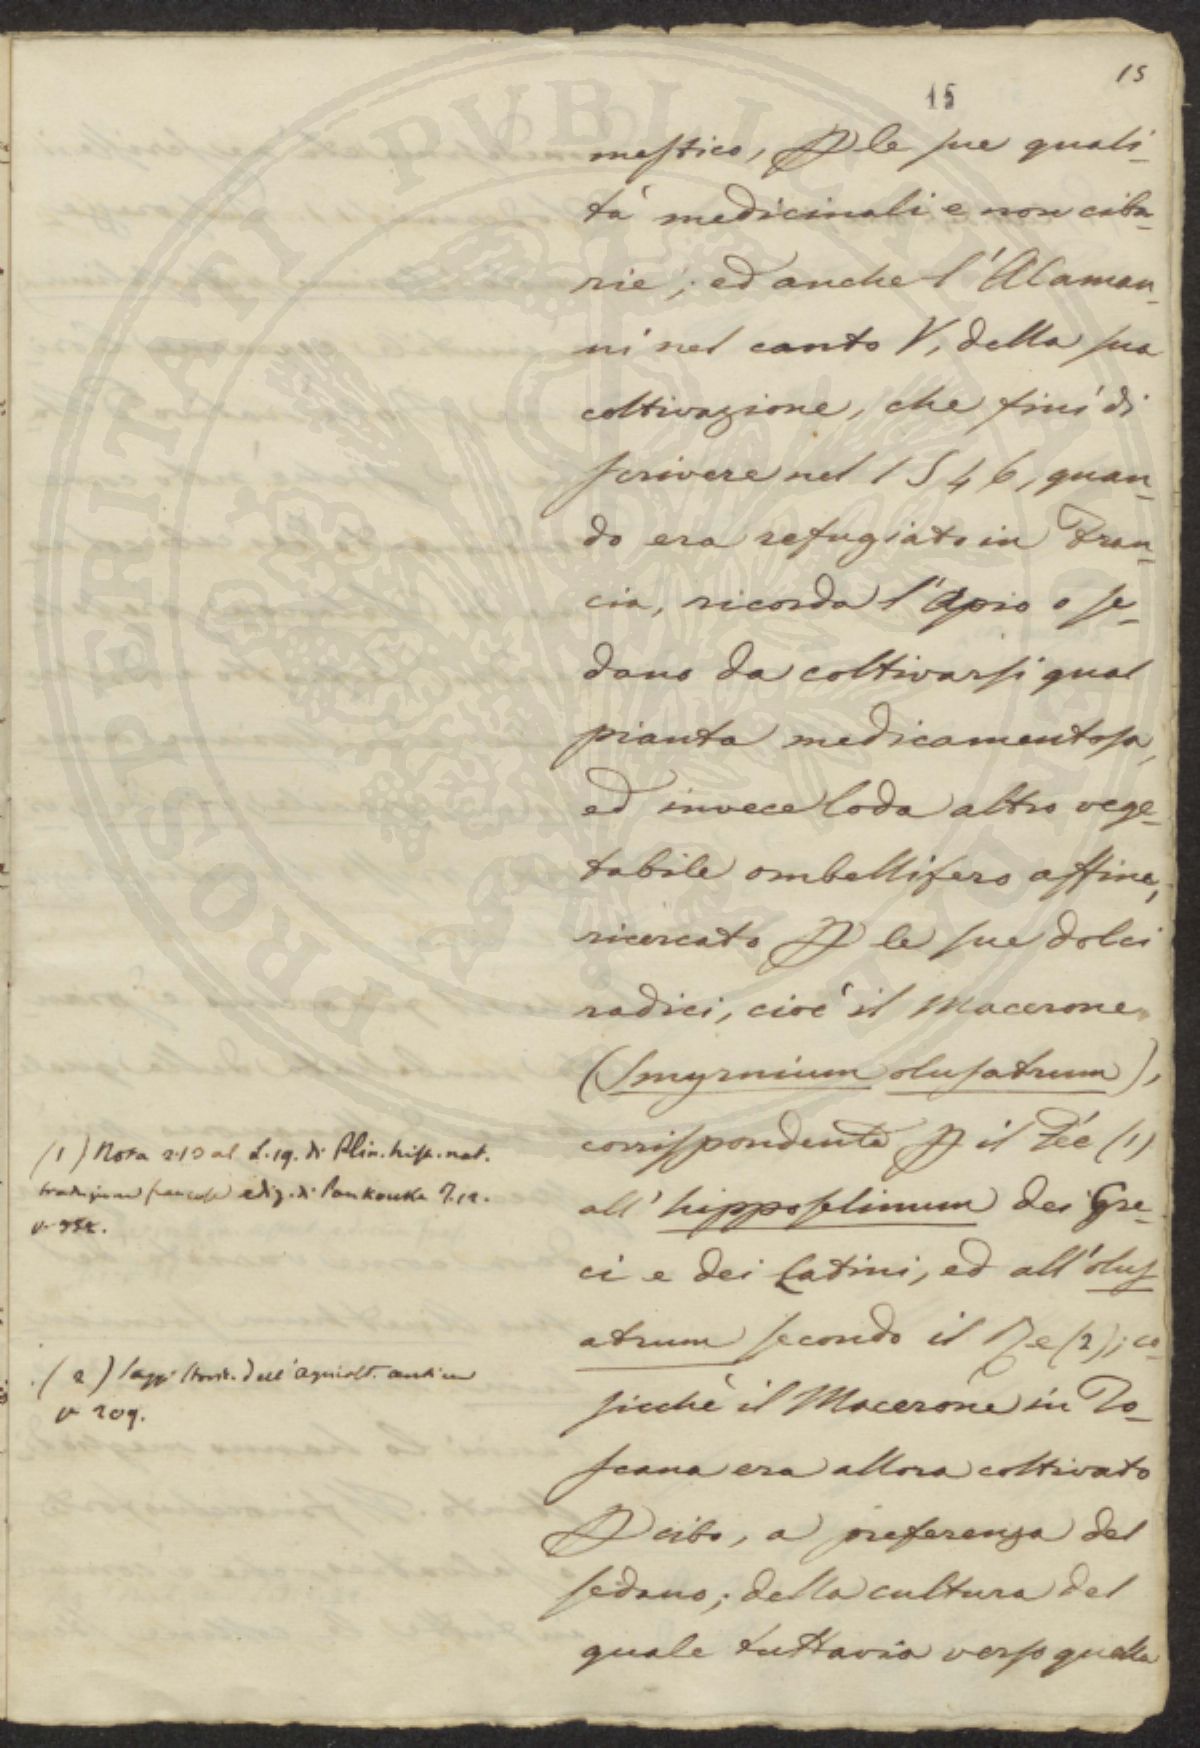 15
15
mestico, P le sue quali-
tà medicinali e non ciba-
rie; ed anche l'Alaman-
ni nel canto V, della sua
coltivazione, che finì di
scrivere nel 1546, quan-
do era refugiato in Fran-
cia, ricorda l'Apio o se-
dano da coltivarsi qual
pianta medicamentosa,
ed invece loda altro vege-
tabile ombellifero affine,
ricercato P le sue dolci
radici, cioè il Macerone
(Smyrnium olusatrum),
corrispondente P il Fée (1)
all'hipposelinum dei Gre-
ci e dei Latini, ed all'olus
atrum secondo il Re (2); co-
sicchè il Macerone in To-
scana era allora coltivato
P cibo, a preferenza del
sedano; della cultura del
quale tuttavia verso quella
(1) Nota 210 al L. 19. di Plin. hist. nat.
traduzione francese ediz. di Pankouke T. 12.
p.
(2) Saggi storic. dell'agricolt. antica
p. 209.
PROSPERITATI PVBLICAE AVGENDAE